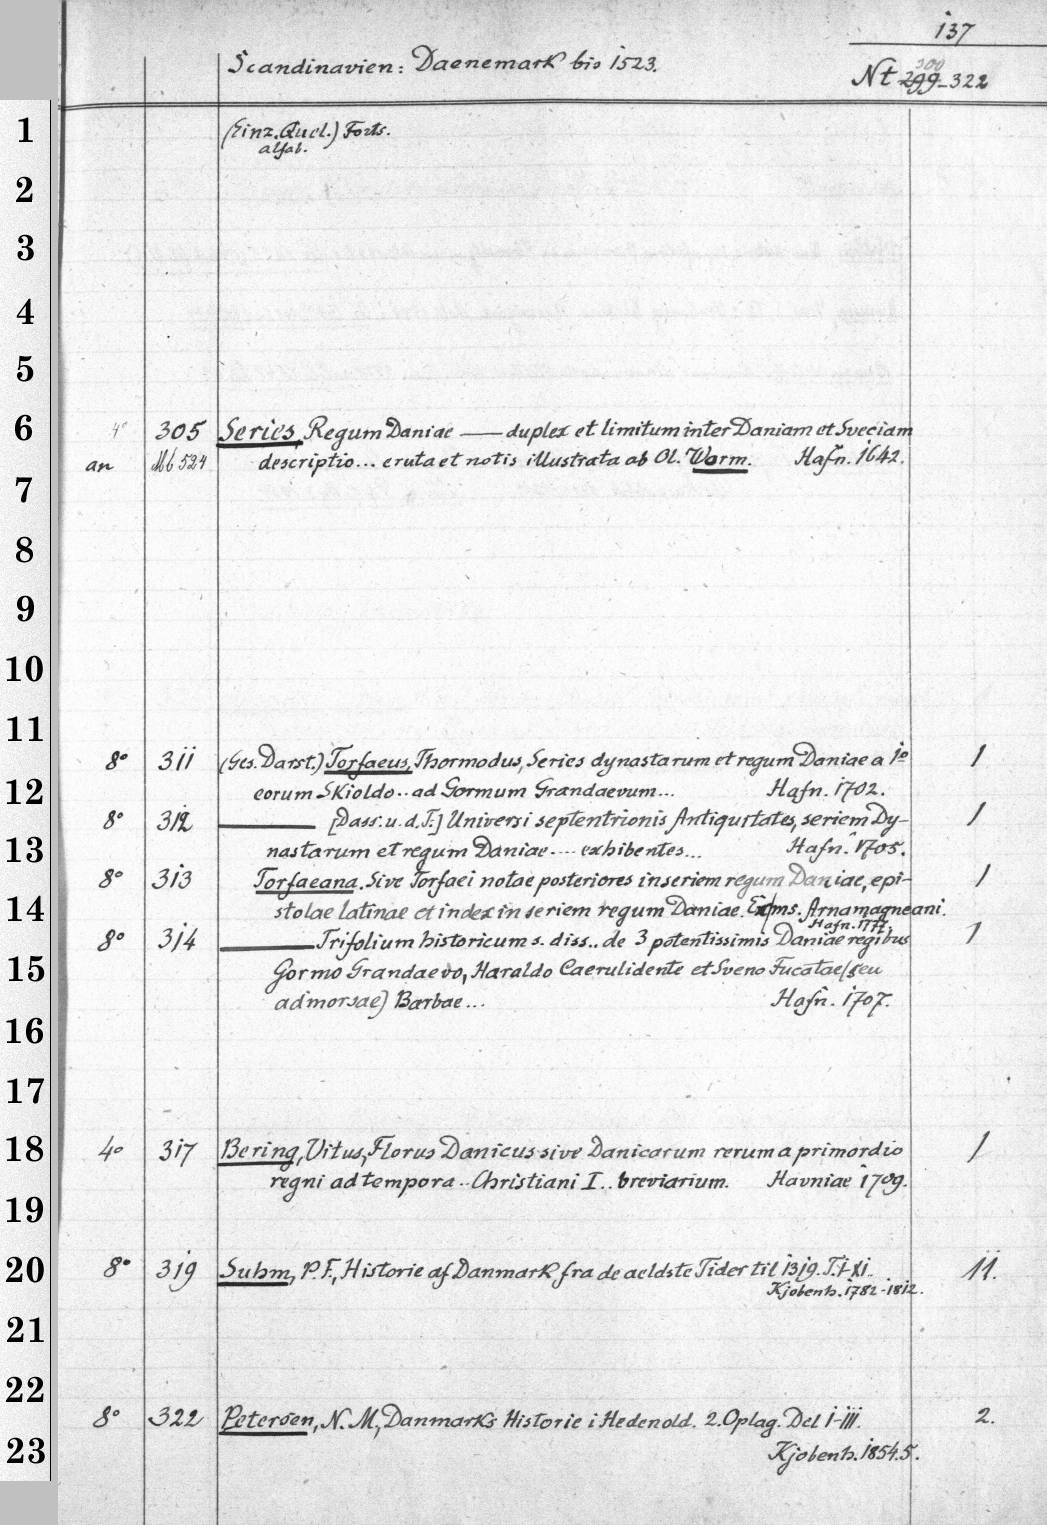 137
Scandinavien: Daenemark bis 1523.
300
Nt 299-322
1 (Einz. Quel.) Forts.
alfab.
2
3
4
5
6 4° 305 Series Regum Daniae —— duplex et limitum inter Daniam et Sveciam
an Mb 524 descriptio... eruta et notis illustrata ab Ol. Worm. Hafn. 1642.
7
8
9
10
11
8° 311 (Ges. Darst.) Torfaeus, Thormodus, Series dynastarum et regum Daniae a 1o 1
12 eorum Skioldo.. ad Gormum Grandaevum... Hafn. 1702.
8° 312 ——— [Dass. u. d. T.] Universi septentrionis Antiquitates, seriem Dy- 1
13 nastarum et regum Daniae.... exhibentes... Hafn. 1705.
8° 313 Torfaeana. Sive Torfaei notae posteriores in seriem regum Daniae, epi- 1
14 stolae latinae et index in seriem regum Daniae. Ex ms. Arnamagneani.
Hafn. 1777.
8° 314 ——— Trifolium historicum s. diss.. de 3 potentissimis Daniae regibus 1
15 Gormo Grandaevo, Haraldo Caerulidente et Sveno Fucatae (seu
admorsae) Barbae... Hafn. 1707.
16
17
18 4° 317 Bering, Vitus, Florus Danicus sive Danicarum rerum a primordio 1
regni ad tempora.. Christiani I.. breviarium. Havniae 1709.
19
20 8° 319 Suhm, P. F., Historie af Danmark fra de aeldste Tider til 1319. T. I-XI.. 11.
Kjobenh. 1782-1812.
21
22
8° 322 Petersen, N. M., Danmarks Historie i Hedenold. 2. Oplag. Del I-III. 2.
23 Kjobenh. 1854.5.